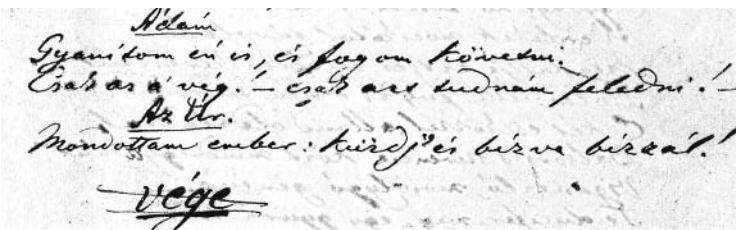 Ádám
Gyanítom én is, és fogom követni.
Csak az a vég! – csak azt tudnám feledni! –
Az Úr.
Mondottam ember: küzdj és bízva bízzál!
vége